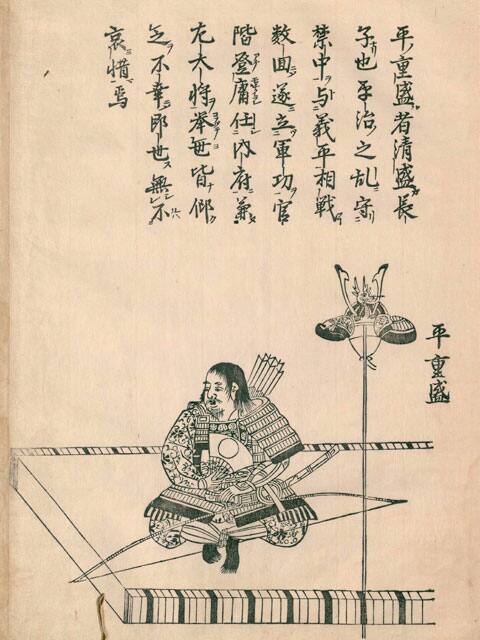 平重盛者清盛長
子也平治之乱守
禁中与義平相戦
数囬遂立軍功官
階登庸仕内府兼
左大将挙世皆仰
之不幸即世無不
哀惜焉
平重盛